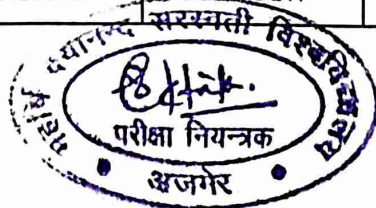 महर्षि दयानन्द सरस्वती विश्वविद्यालय
परीक्षा नियन्त्रक
अजमेर